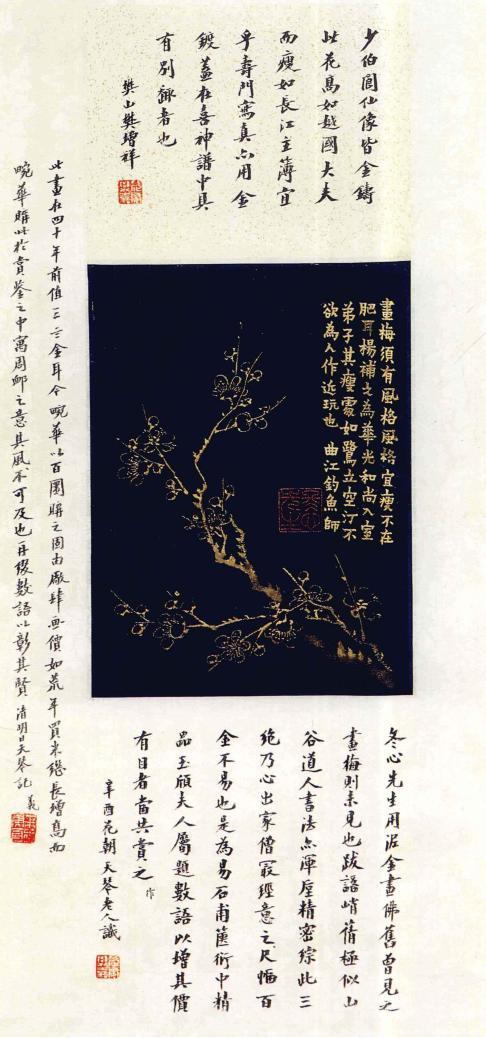 少伯閭仙像皆金鑄
此花髙如越國大夫
而瘦如長江主簿宜
乎壽門寫真亦用金
鍍蓋在喜神譜中具
有別龢者也
樊山樊增祥
畫梅須有風格風格宜瘦不在
肥耳楊補之為華光和尚入室
弟子其瘦處如鷺立空汀不
欲為人作近玩也 曲江釣魚師
冬心先生用泥金畫佛舊曾見之
畫梅則未見也跋語峭蒨極似山
谷道人書法亦渾厚精密綜此三
絶乃心出家僧冣經意之尺幅百
金不易也是為易石甫篋衍中精
品玉頎夫人屬題數語以增其價
有目者當共賞之 作
辛酉花朝天琴老人識
此畫在四十年前值三二金耳今畹華以百圜購之固由廠肆畫價如荒年買米總長增髙而
畹華購此於賞鉴之中寓周䘏之意其風不可及也再綴數語以彰其賢 清明日天琴記 義